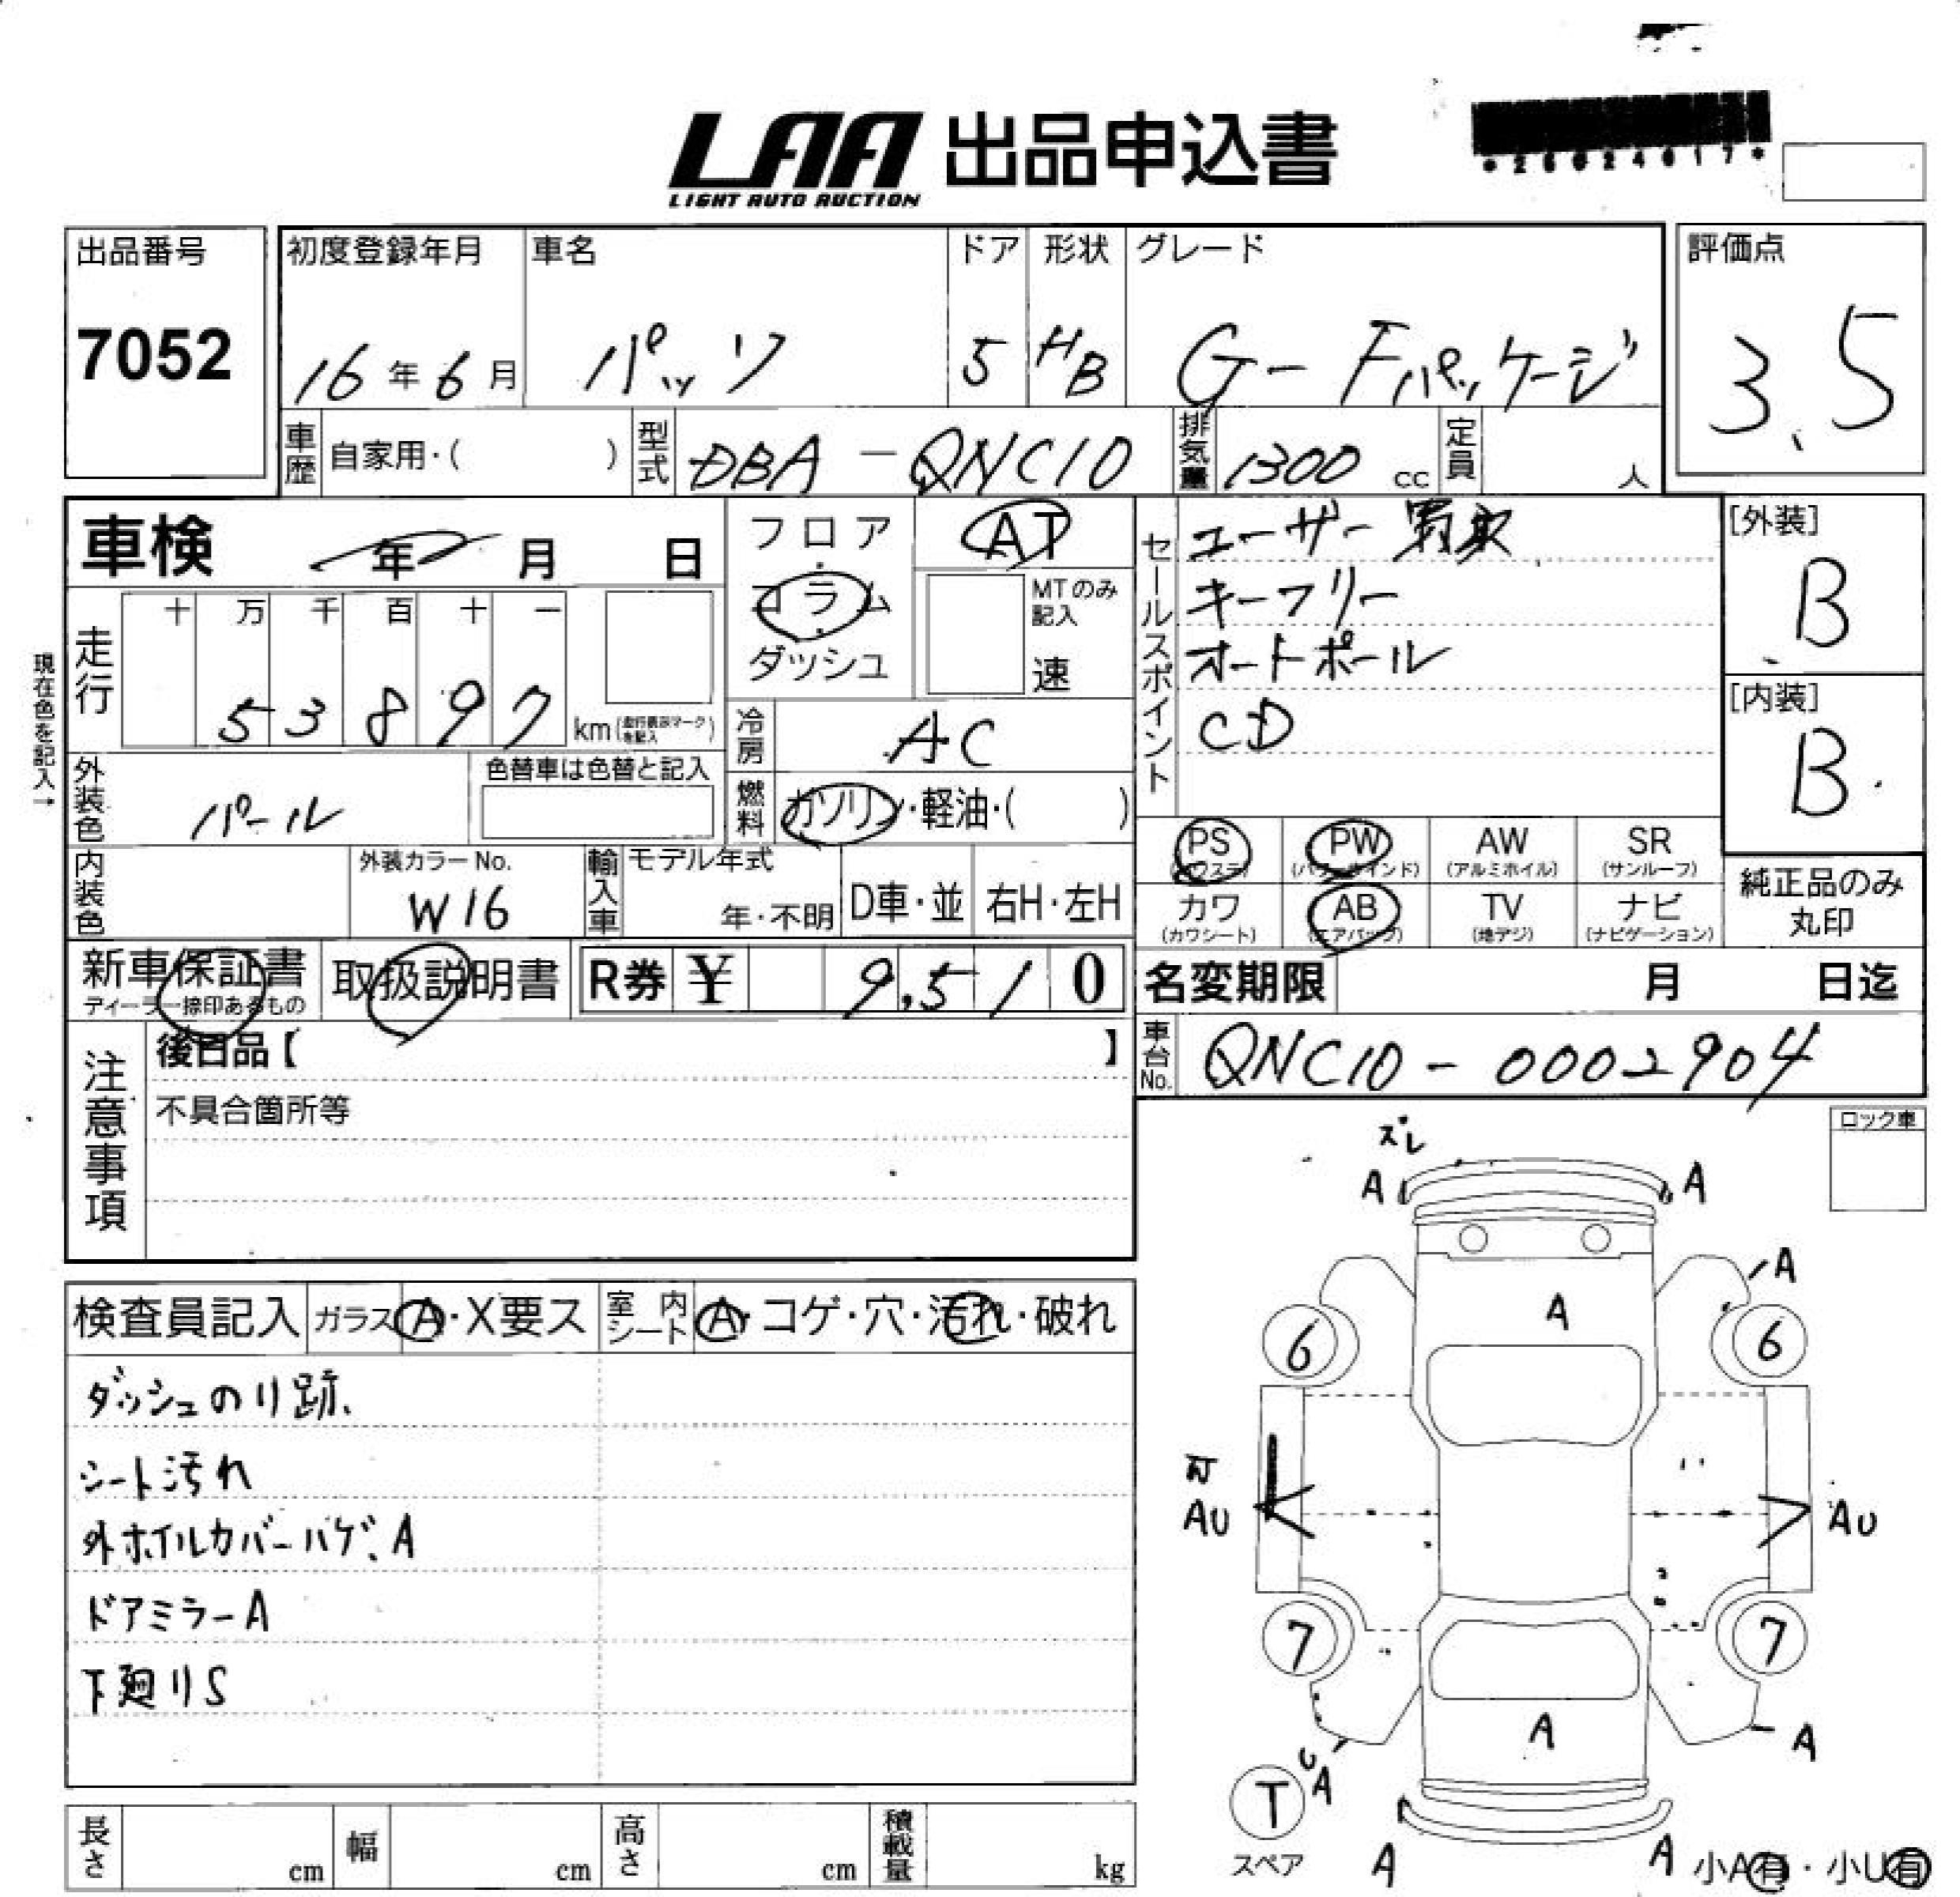 LAA 出品申込書
LIGHT AUTO AUCTION
出品番号
7052
初度登録年月
16年6月
車名
パッソ
ドア
5
形状
HB
グレード
G-Fパッケージ
評価点
3.5
車歴 自家用・( )
型式 DBA-QNC10
排気量 1300 cc
定員 人
車検 年 月 日
フロア・コラム・ダッシュ
AT
MTのみ記入
速
走行
十 万 千 百 十 一
53897 km
現在色を記入→
冷房 AC
燃料 ガソリン・軽油・( )
外装色 パール
色替車は色替と記入
内装色
外装カラーNo.
W16
輸入車 モデル年式
年・不明
D車・並
右H・左H
セールスポイント
ユーザー買取
キーフリー
オートポール
CD
[外装]
B
[内装]
B
PS PW AW SR
(パワステ) (パワーウインド) (アルミホイル) (サンルーフ)
カワ AB TV ナビ
(カワシート) (エアバッグ) (地デジ) (ナビゲーション)
純正品のみ丸印
新車保証書
ディーラー捺印あるもの
取扱説明書
R券 ¥ 9,510
名変期限 月 日迄
車台No. QNC10-0002904
注意事項
後日品【 】
不具合箇所等
ロック車
検査員記入 ガラス A・X要ス 室内シート A・コゲ・穴・汚れ・破れ
ダッシュのり跡、
シート汚れ
外ホイルカバーハゲ、A
ドアミラーA
下廻りS
ズレ
A A
A
A
6 6
AU AU
7 7
A
A
U
A
T
スペア
A A
小A有・小U有
長さ cm 幅 cm 高さ cm 積載量 kg